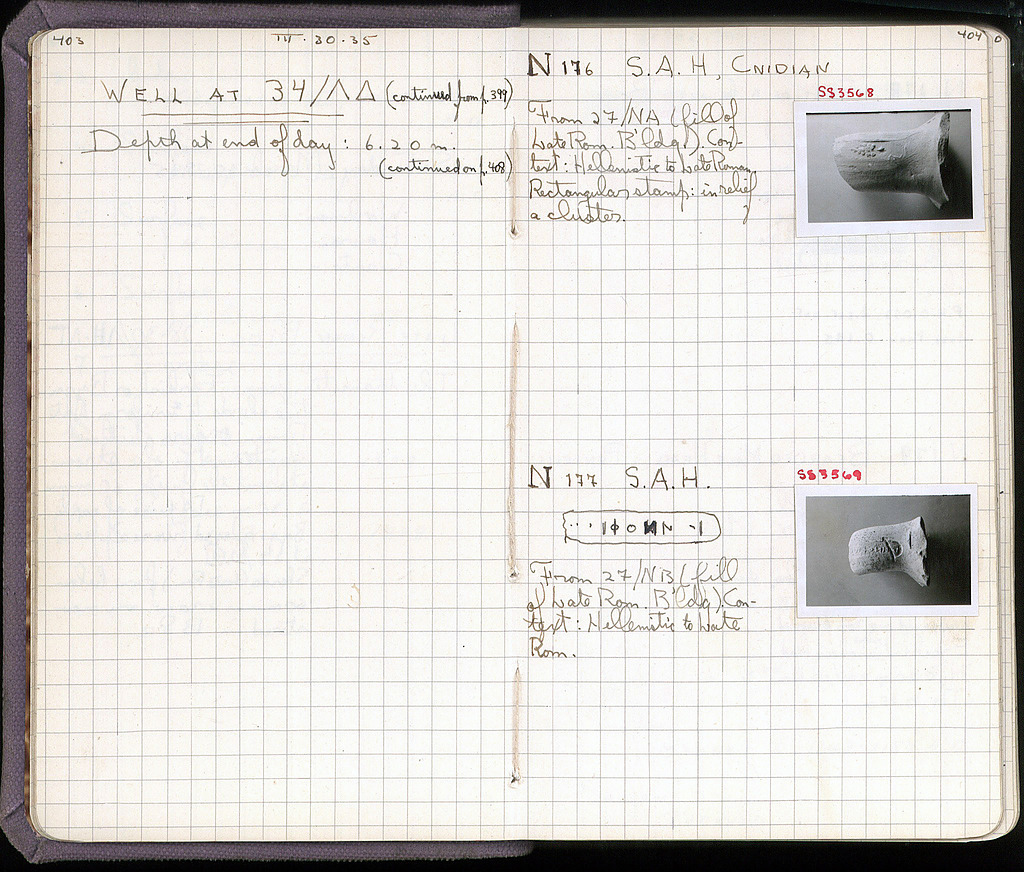 403
III · 30 · 35
WELL AT 34/ΛΔ (continued from p. 399)
Depth at end of day: 6.20 m.
(continued on p. 408)
404
N 176 S.A.H, CNIDIAN
SS3568
From 27/NA (fill of
Late Rom. B'ldg). Con-
text: Hellenistic to Late Roman.
Rectangular stamp: in relief
a cluster.
N 177 S.A.H.
SS3569
From 27/NB (fill
of Late Rom. B'ldg). Con-
text: Hellenistic to Late
Rom.